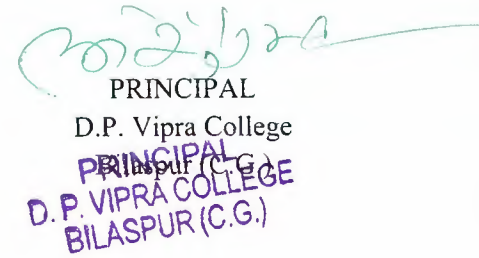 PRINCIPAL
D.P. Vipra College
Bilaspur (C.G.)
PRINCIPAL
D. P. VIPRA COLLEGE
BILASPUR (C.G.)